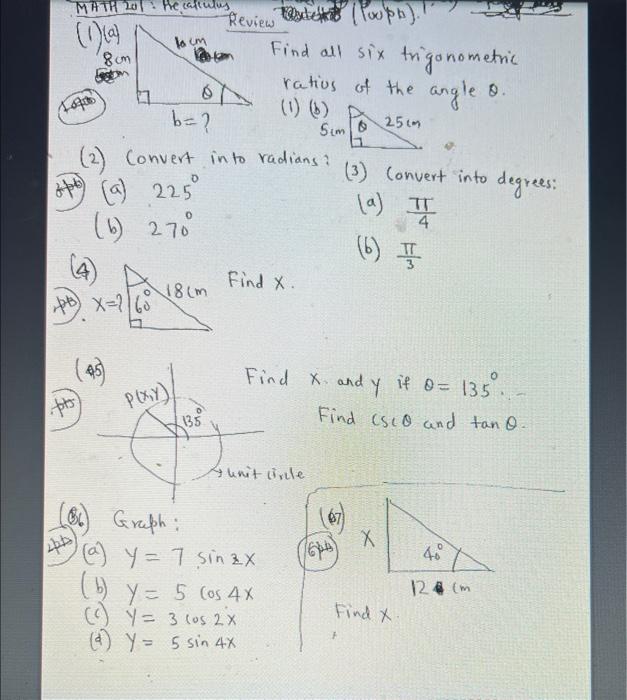 MATH 201 : Precalculus
Review (100pts).
(1)(a) 10 cm
8cm
θ
b=?
Find all six trigonometric
ratios of the angle θ.
(1) (b)
5cm θ 25cm
(2) Convert into radians:
(a) 225°
(b) 270°
(3) Convert into degrees:
(a) π/4
(b) π/3
(4)
X=? 60° 18cm Find X.
(5)
P(X,Y)
135°
unit circle
Find X and y if θ= 135°.
Find cscθ and tanθ.
(6) Graph:
(a) Y = 7 sin 2X
(b) Y = 5 cos 4X
(c) Y = 3 cos 2X
(d) Y = 5 sin 4X
(7)
X 40°
12 cm
Find X.